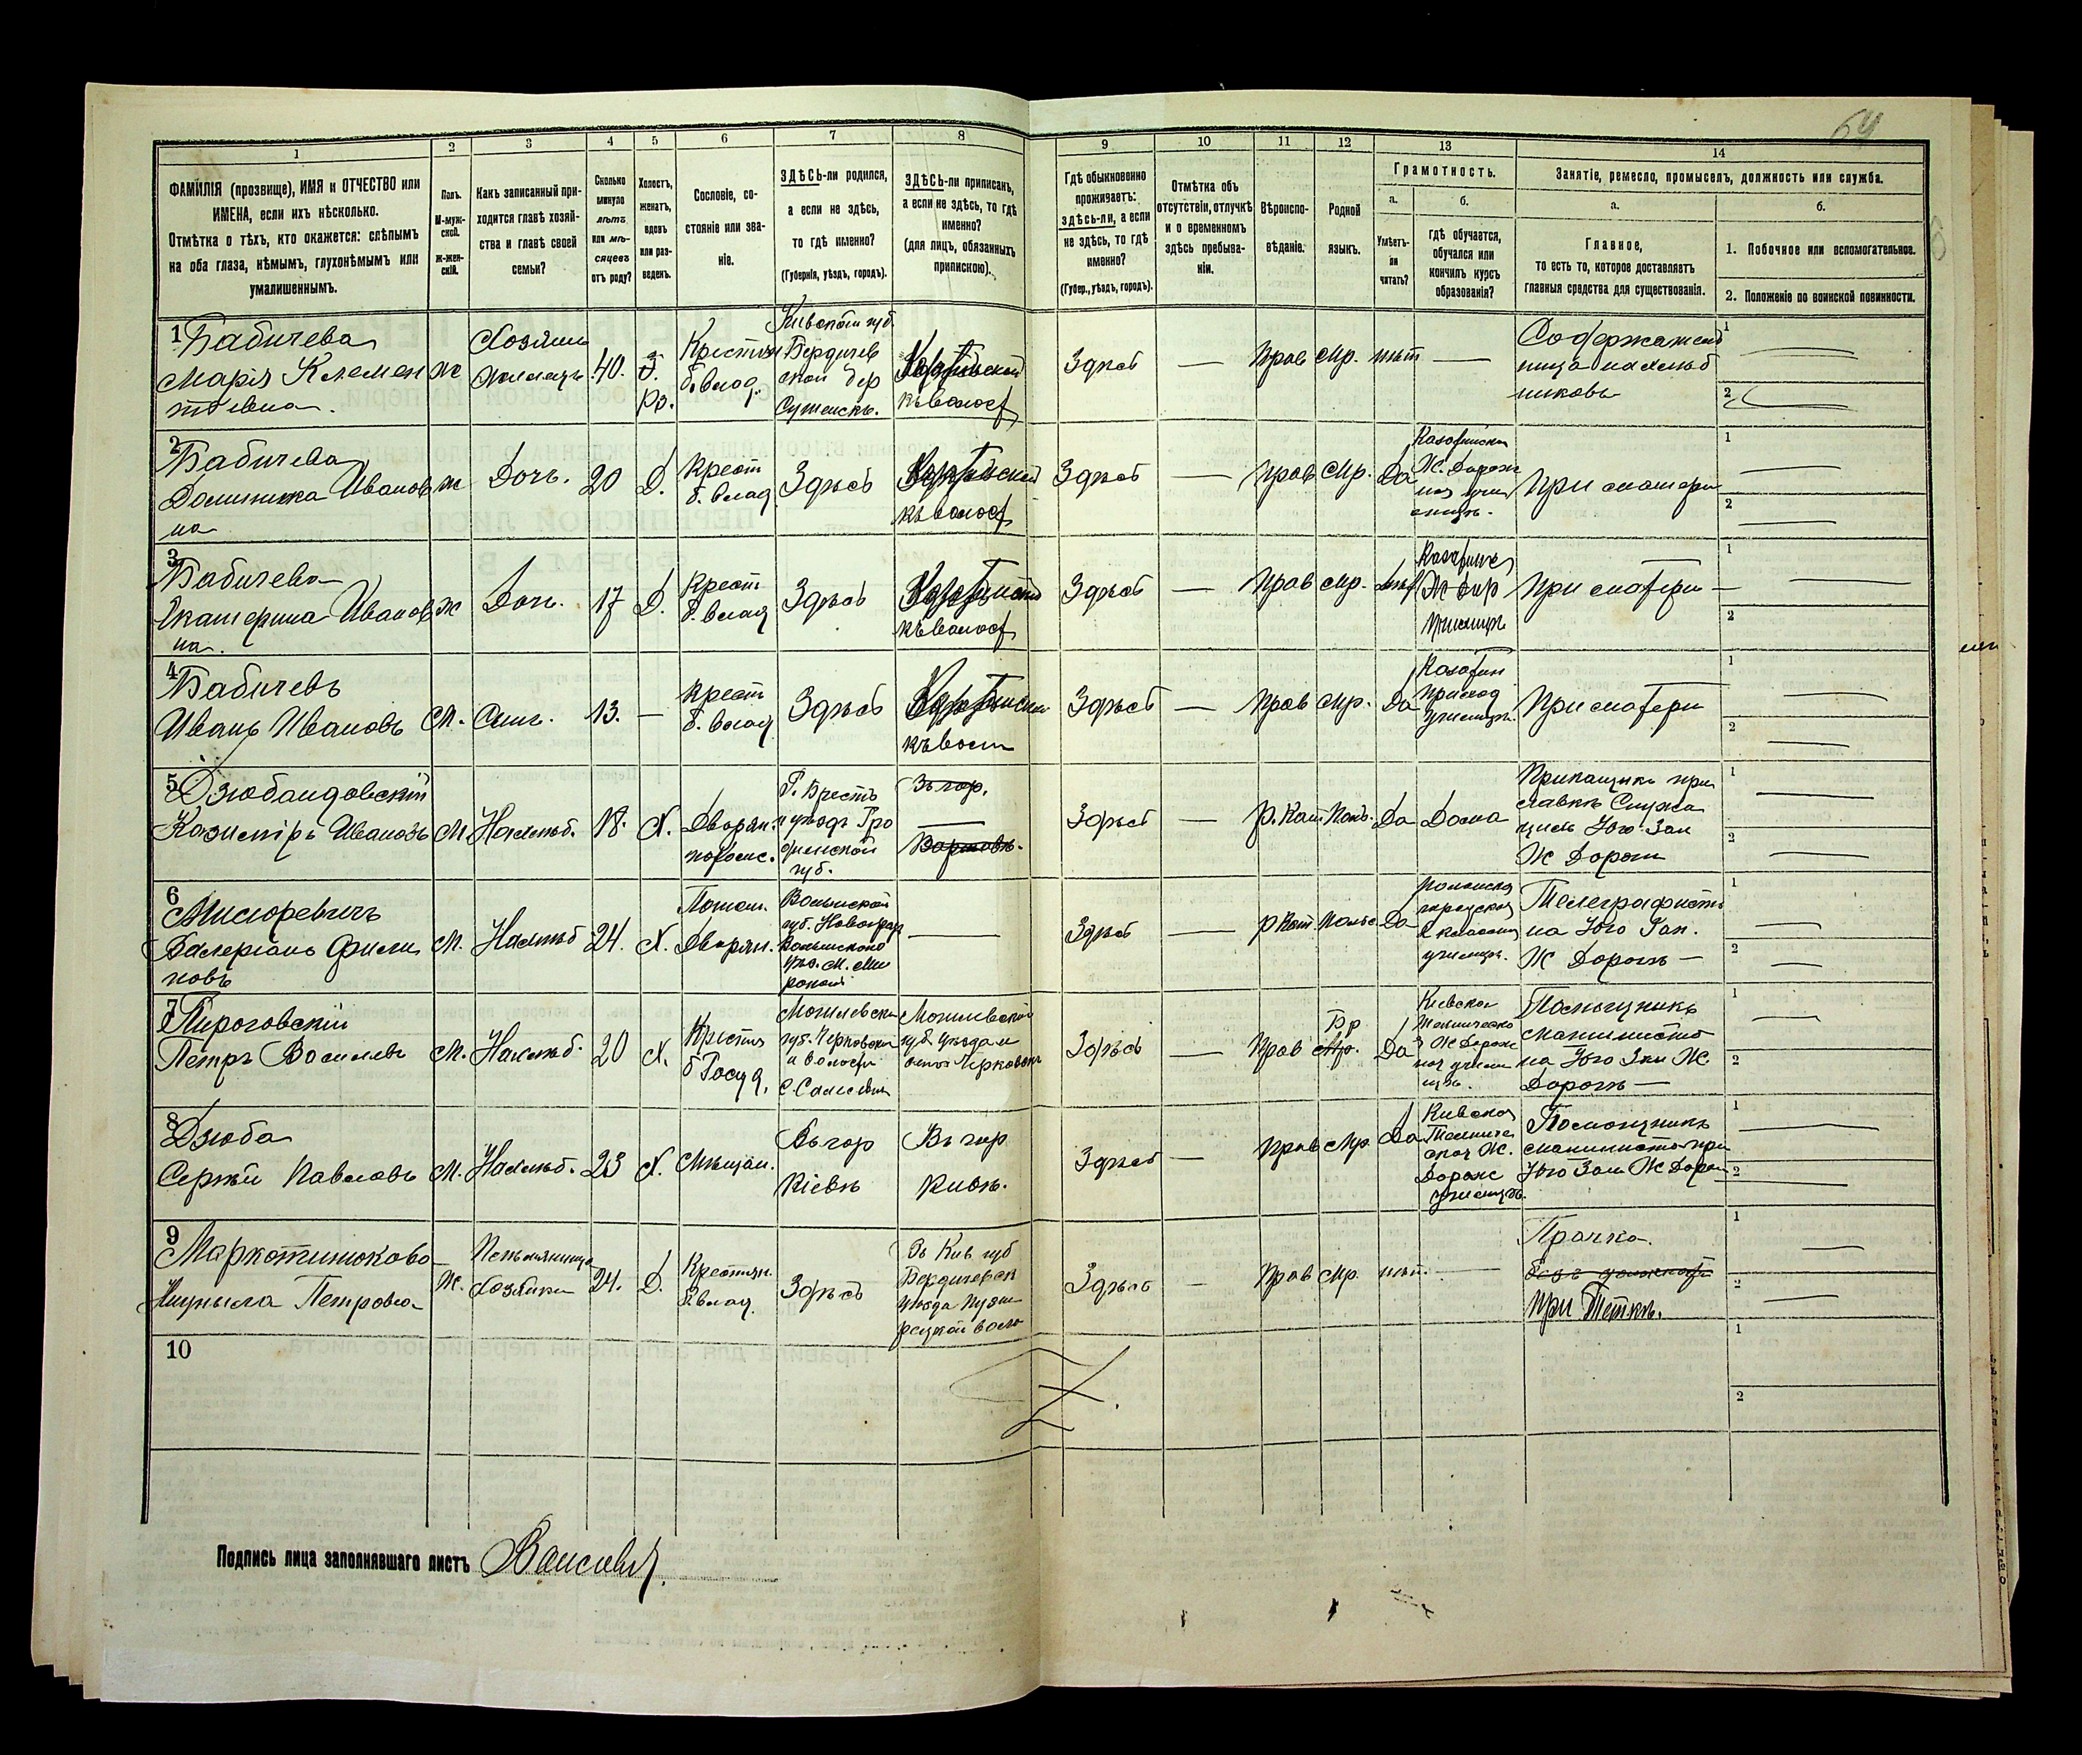 64
1
2
3
4
5
6
7
8
9
10
11
12
13
14
ФАМИЛІЯ (прозвище), ИМЯ и ОТЧЕСТВО или
ИМЕНА, если ихъ нѣсколько.
Отмѣтка о тѣхъ, кто окажется: слѣпымъ
на оба глаза, нѣмымъ, глухонѣмымъ или
умалишеннымъ.
Полъ.
М-муж-
ской.
ж-жен-
скій.
Какъ записанный при-
ходится главѣ хозяй-
ства и главѣ своей
семьи?
Сколько
минуло
лѣтъ
или мѣ-
сяцевъ
отъ роду?
Холостъ,
женатъ,
вдовъ
или раз-
веденъ.
Сословіе, со-
стояніе или зва-
ніе.
ЗДѢСЬ-ли родился,
а если не здѣсь,
то гдѣ именно?
(Губернія, уѣздъ, городъ).
ЗДѢСЬ-ли приписанъ,
а если не здѣсь, то гдѣ
именно?
(для лицъ, обязанныхъ
припискою).
Гдѣ обыкновенно
проживаетъ:
здѣсь-ли, а если
не здѣсь, то гдѣ
именно?
(Губер., уѣздъ, городъ).
Отмѣтка объ
отсутствіи, отлучкѣ
и о временномъ
здѣсь пребыва-
ніи.
Вѣроиспо-
вѣданіе.
Родной
языкъ.
Грамотность.
а.
Умѣетъ-
ли
читать?
б.
гдѣ обучается,
обучался или
кончилъ курсъ
образованія?
Занятіе, ремесло, промыселъ, должность или служба.
а.
Главное,
то есть то, которое доставляетъ
главныя средства для существованія.
б.
1. Побочное или вспомогательное.
2. Положеніе по воинской повинности.
1
Бабичева
Марія Клемен
тіевна
Ж
Хозяин
40.
Рз.
Крестьян
б. влад.
Кіевской губ.
Бердичев
ской дер
Здѣсь
—
Прав
Мр.
нѣт
—
Содержател
ница нахлѣб
никовъ
1
2
2
Бабичева
Доминика Иванов
на
ж
Дочь.
20
Д.
Крест
б. влад
Здѣсь
Здѣсь
—
Прав
Мр.
Да
Ж. Дорож
ное учи
При матери
1
2
3
Бабичева
Екатерина Иванов
на.
Ж
Дочь.
17
Д.
Крест
б. влад
Здѣсь
Здѣсь
—
Прав
Мр.
При матери —
1
2
4
Бабичевъ
Иванъ Ивановъ
М.
Сынъ.
13.
—
Крест
б. влад
Здѣсь
Здѣсь
—
Прав
Мр.
Да
Казатин
Приход
училищѣ.
При матери
1
2
5
Дзюбандовскій
Казиміръ Ивановъ
М.
Нахлѣб.
18.
Х.
Дворян.
Г. Брестъ
уѣздъ Гро
дненской
губ.
Въ гор.
Здѣсь
—
р. Кат
Поль.
Да
Дома
Юго. Зап
Ж Дороги
1
2
6
Мисюревичъ
Валеріанъ Филип
повъ
М.
Нахлѣб
24.
Х.
Потом.
Дворян.
Волынской
губ. Новоград
Волынского
—
Здѣсь
—
р Кат
Польс.
Да
городское
2 классное
училищ.
Телеграфистъ
на Юго Зап.
Ж Дорогѣ —
1
2
7
Пироговскій
Петръ Васильевъ
М.
Нахлѣб.
20
Х.
Крестья
б Госуд.
Могилевской
Могилевской
Здѣсь
—
Прав
Бр
Мр.
Да
Кіевское
Техническо
Ж Дорож
ное учили
щѣ.
Помощникъ
машиниста
на Юго Зап Ж
Дорогѣ —
1
2
8
Дзюба
Сергѣй Павловъ
М.
Нахлѣб.
23
Х.
Мѣщан.
Въ гор
Кіевѣ
Въ гор
Кіевѣ.
Здѣсь
—
Прав
Мр.
Да
Кіевское
Техниче
ское Ж.
Дорож
училищѣ.
Помощникъ
машиниста при
Юго Зап Ж Дорог
1
2
9
Петрова
Ж.
Племянница
хозяйки
24.
Д.
Крестьян.
б. влад.
Здѣсь
Въ Кіев губ
Бердичевск
уѣзда
Здѣсь
—
Прав
Мр.
нѣт.
—
Прачка.
При Теткѣ.
1
2
10
1
2
Подпись лица заполнявшаго листъ